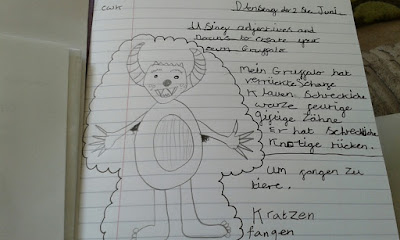 CWK
Dienstag der 25te Juni
Using adjectives and
nouns to create your
own Gruffalo
Mein Gruffalo hat
verrückte
Klauen Schreckliche
warze feurige
giftige Zähne
Er hat Schreckliche
Knotige rücken.
um fangen zu
tiere.
Kratzen
fangen